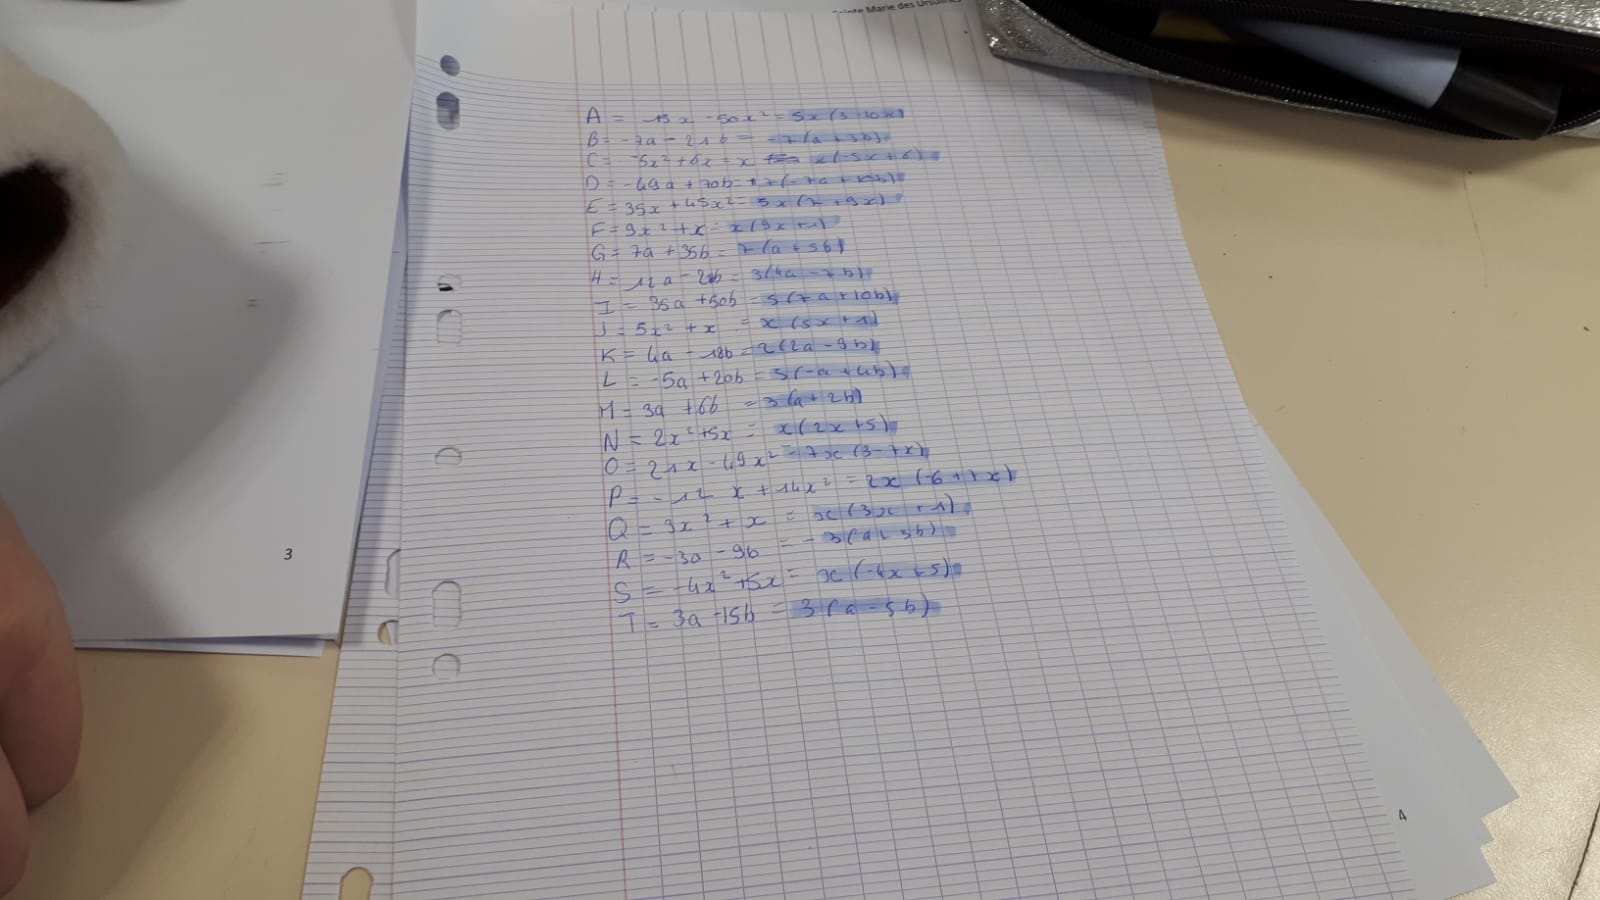 Sainte Marie des Ursulines
A = 15x - 50x² = 5x(3-10x)
B = -7a - 21b = -7(a+3b)
C = -5x² + 6x = x x(-5x+6)
D = -49a + 70b = 7(-7a+10b)
E = 35x + 45x² = 5x(7+9x)
F = 9x² + x = x(9x+1)
G = 7a + 35b = 7(a+5b)
H = 12a - 21b = 3(4a-7b)
I = 35a + 50b = 5(7a+10b)
J = 5x² + x = x(5x+1)
K = 4a - 18b = 2(2a-9b)
L = -5a + 20b = 5(-a+4b)
M = 3a + 6b = 3(a+2b)
N = 2x² + 5x = x(2x+5)
O = 21x - 49x² = 7x(3-7x)
P = -12x + 14x² = 2x(-6+7x)
Q = 3x² + x = x(3x+1)
R = -3a - 9b = -3(a+3b)
S = -4x² + 5x = x(-4x+5)
T = 3a - 15b = 3(a-5b)
3
4